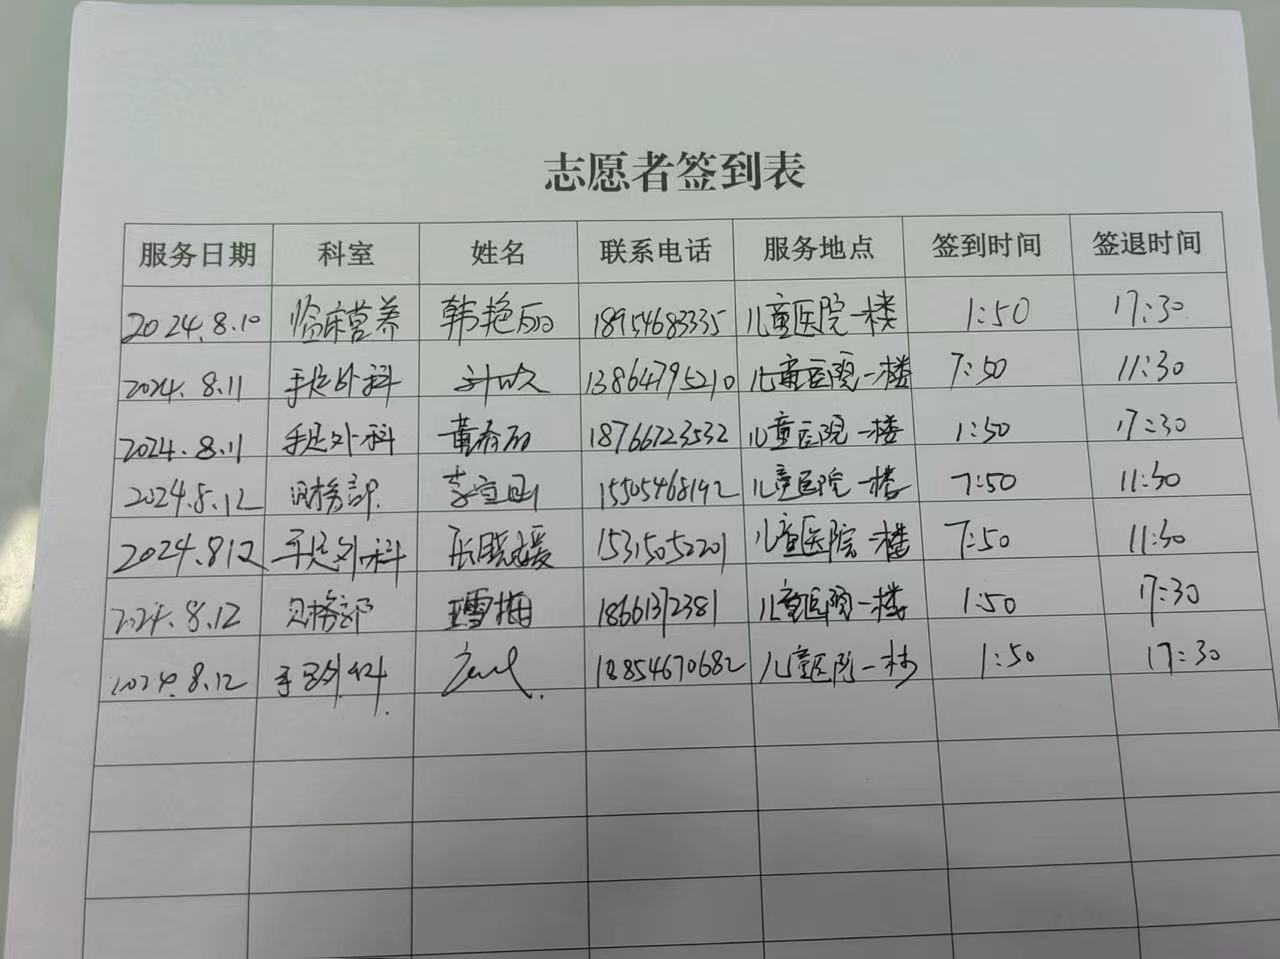 志愿者签到表
服务日期 科室 姓名 联系电话 服务地点 签到时间 签退时间
2024.8.10 临床营养 韩艳丽 18954683335 儿童医院一楼 1:50 17:30
2024.8.11 手足外科 13864795210 儿童医院一楼 7:50 11:30
2024.8.11 手足外科 黄希丽 18766723532 儿童医院一楼 1:50 17:30
2024.8.12 财务部 李宣国 15505468192 儿童医院一楼 7:50 11:30
2024.8.12 手足外科 张晓媛 15315052201 儿童医院一楼 7:50 11:30
2024.8.12 财务部 王雪梅 18661372381 儿童医院一楼 1:50 17:30
2024.8.12 手足外科 18854670682 儿童医院一楼 1:50 17:30